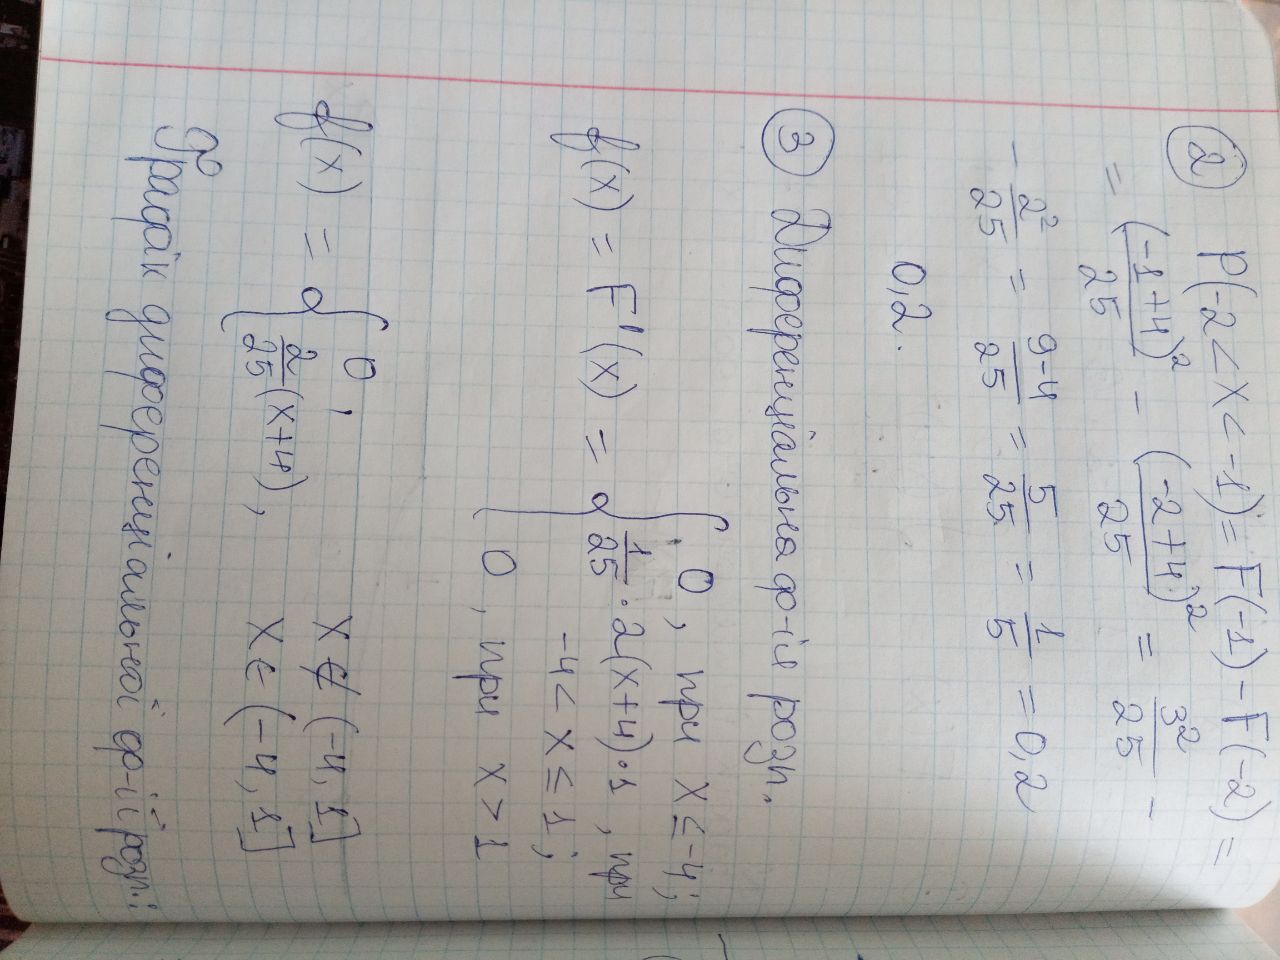 ② P(-2 < X < -1) = F(-1) - F(-2) =
= (-1+4)²/25 - (-2+4)²/25 = 3²/25 -
- 2²/25 = 9-4/25 = 5/25 = 1/5 = 0,2
0,2.
③ Диференціальна ф-ія розп.
f(x) = F'(x) = { 0, при x ≤ -4;
1/25 · 2(x+4) · 1, при
-4 < x ≤ 1;
0, при x > 1
f(x) = { 0, x ∉ (-4, 1]
2/25 (x+4), x ∈ (-4, 1]
Графік диференціальної ф-ії розп.: